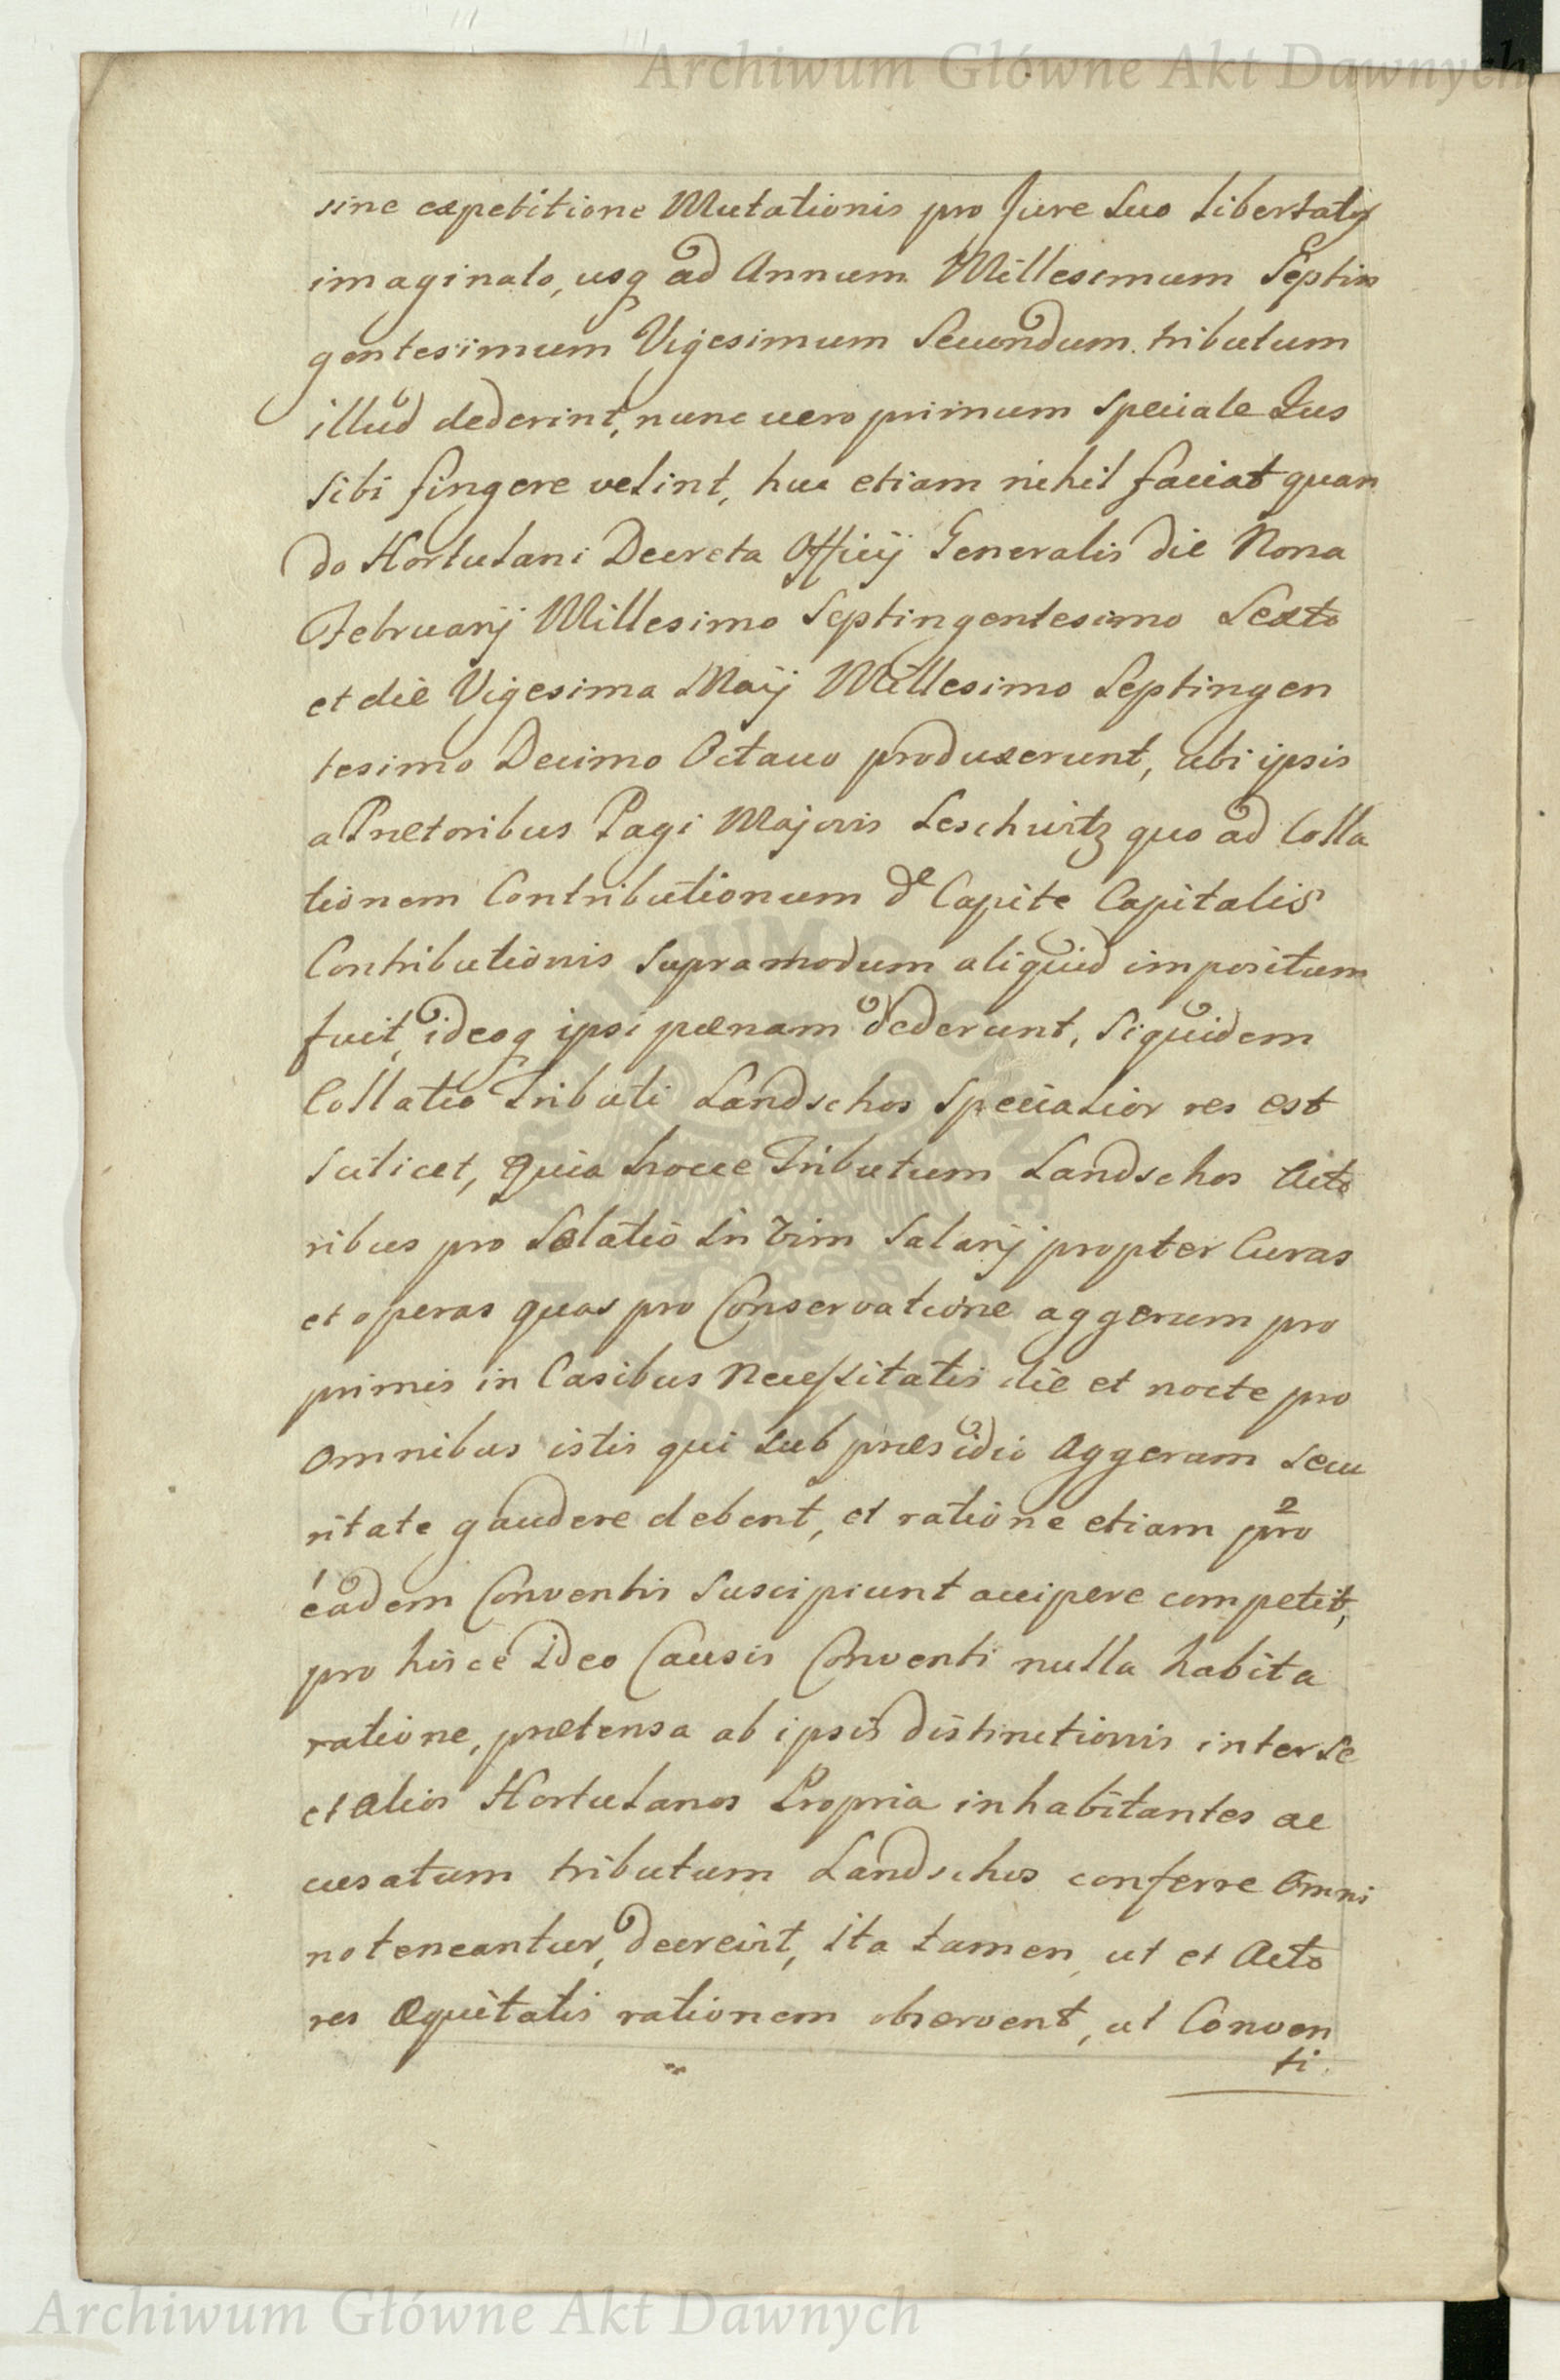 Archiwum Główne Akt Dawnych
sine expetitione Mutationis pro Jure Suo Libertatis
imaginato, usq ad Annum Millesimum Septin
gentesimum Vigesimum Secundum tributum
illud dederint, nunc uero primum Speciale Jus
Sibi fingere velint, huc etiam nihil faciat quan
do Hortulani Decreta Officij Generalis die Nona
Februarij Millesimo Septingentesimo Sexto
et die Vigesima Maij Millesimo Septingen
tesimo Decimo Octauo produxerunt, ubi ipsis
a Prætoribus Pagi Majoris Leschwitz quo ad Colla
tionem Contributionum de Capite Capitalis
Contributionis Supra modum aliquid impositum
fuit, ideoq ipsi pænam dederunt, Siquidem
Collatio Tributi Landschos Specialior res est
Scilicet, quia hocce Tributum Landschos Acto
ribus pro Solatio in vim Salarij propter Curas
et operas quas pro Conservatione aggerum pro
primis in Casibus Necessitatis die et nocte pro
omnibus istis qui Sub præsidio Aggerum Secu
ritate gaudere debent, et ratione etiam pro 2
1 eadem Conventis Suscipiunt accipere competit,
pro hisce ideo Causis Conventi nulla habita
ratione, prætensa ab ipsis distinctionis inter Se
et alios Hortulanos Propria inhabitantes ac
cusatum tributum Landschos conferre Omni
no teneantur, decreuit, ita tamen, ut et Acto
res Æquitatis rationem observent, ut Conven
ti.
Archiwum Główne Akt Dawnych